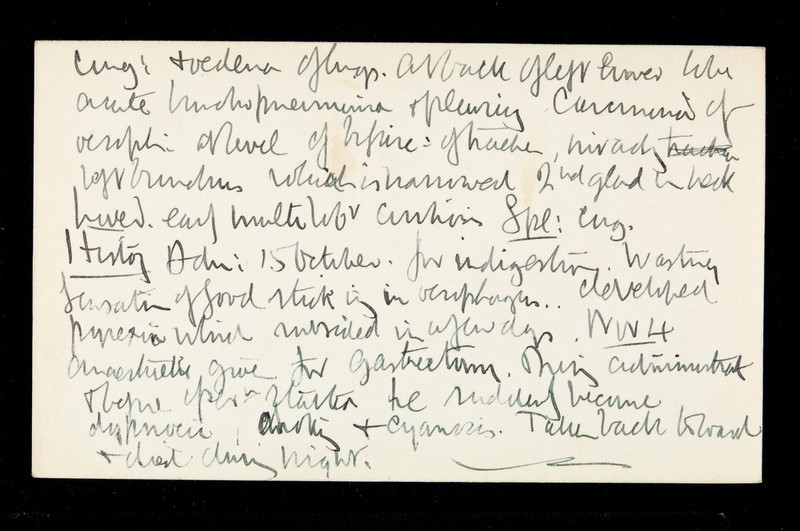 Cong: + oedema of lungs. At back of left lower lobe
acute bronchopneumonia + pleurisy Carcinoma of
oesoph: at level of bifurc: of trachea, invading trachea
left bronchus which is narrowed 2nd glad in neck
Liver. early multilobr cirrhosis Spl: cong.
History Adm: 15 October. for indigestion. Wasting
Sensation of food sticking in oesophagus.. developed
pyrexia which subsided in a few days. Nov 4
Anaesthetic given for gastrectomy. During administrat
& before opern started he suddenly became
dyspnoeic, + cyanosis. Taken back to ward
+ died during night.